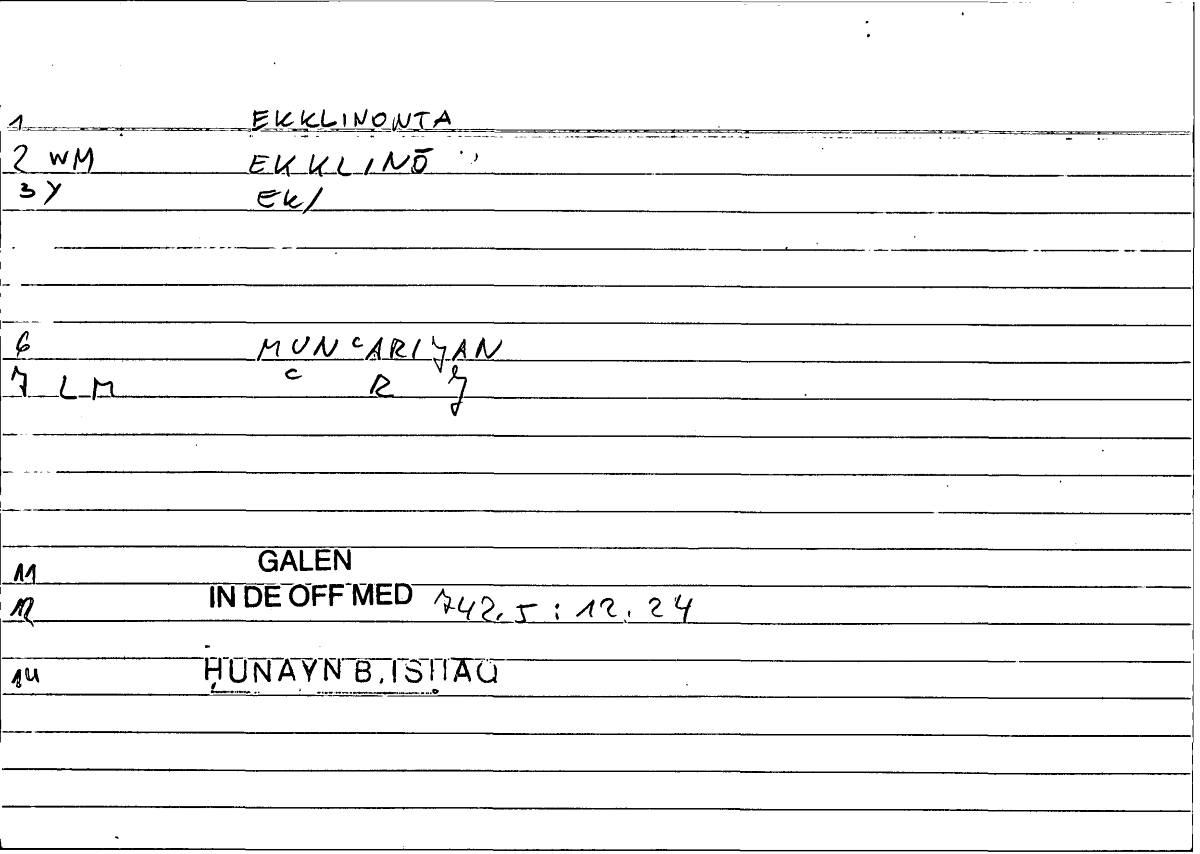 1 EKKLINONTA
2 WM EKKLINŌ
3 Y EK/
6 MUNʿARIǦAN
7 LM ʿ R Ǧ
11 GALEN
12 IN DE OFF MED 742.5 : 12.24
14 ḤUNAYN B. ISḤAQ